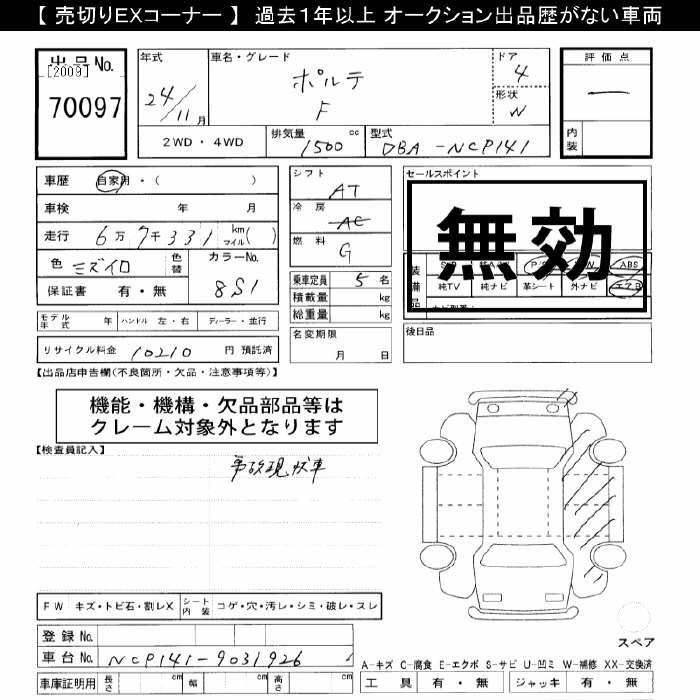 【 売切りEXコーナー 】 過去1年以上 オークション出品歴がない車両
出品 No.
[2009]
70097
年式
24/11月
車名・グレード
ポルテ
F
ドア
4
形状
W
評価点
一
内装
2WD・4WD
排気量
1500 cc
型式
DBA-NCP141
車歴 自家用・( )
車検 年 月
走行 6万7千331 km マイル( )
色 ミズイロ 色替 カラーNo.
8S1
保証書 有・無
シフト
AT
冷房
AC
燃料
G
乗車定員 5 名
積載量 kg
総重量 kg
名変期限
月 日
セールスポイント
無効
装備品
ABS
純TV 純ナビ 革シート 外ナビ エアB
後日品
モデル年式 年 ハンドル 左・右 ディーラー・並行
リサイクル料金 10210 円 預託済
【出品店申告欄(不良箇所・欠品・注意事項等)】
機能・機構・欠品部品等は
クレーム対象外となります
【検査員記入】
事故現状車
FW キズ・トビ石・割レX シート内装 コゲ・穴・汚レ・シミ・破レ・スレ
登録 No.
車台 No. NCP141-9031926
車庫証明用 長さ cm 幅 cm 高さ cm
スペア
A-キズ C-腐食 E-エクボ S-サビ U-凹ミ W-補修 XX-交換済
工具 有・無 ジャッキ 有・無